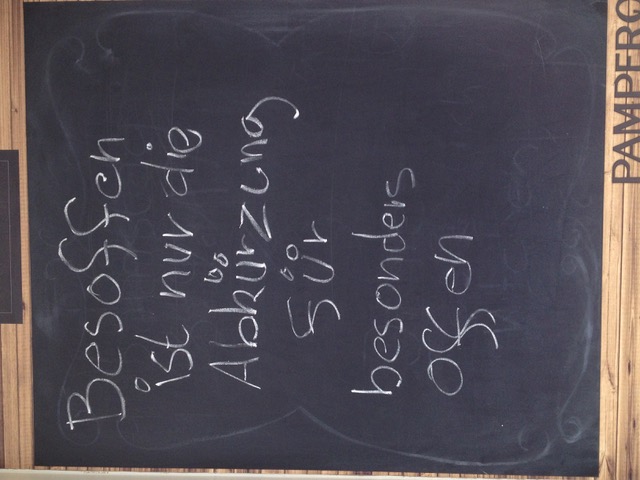 Besoffen
ist nur die
Abkürzung
für
besonders
offen
PAMPERO